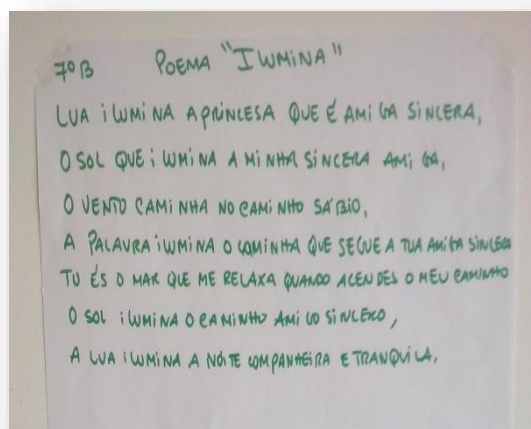 7º B POEMA "ILUMINA"
LUA iLUMiNA A PRiNCESA QUE É AMiGA SiNCERA,
O SOL QUE iLUMiNA A MiNHA SiNCERA AMiGA,
O VENTO CAMiNHA NO CAMiNHO SÁBiO,
A PALAVRA iLUMiNA O CAMINHA QUE SEGUE A TUA AMiGA SiNCERA
TU ÉS O MAR QUE ME RELAXA QUANDO ACENDES O MEU CAMINHO
O SOL iLUMiNA O CAMiNHO AMiGO SiNCERO,
A LUA iLUMiNA A NOiTE COMPANHEiRA E TRANQUiLA.